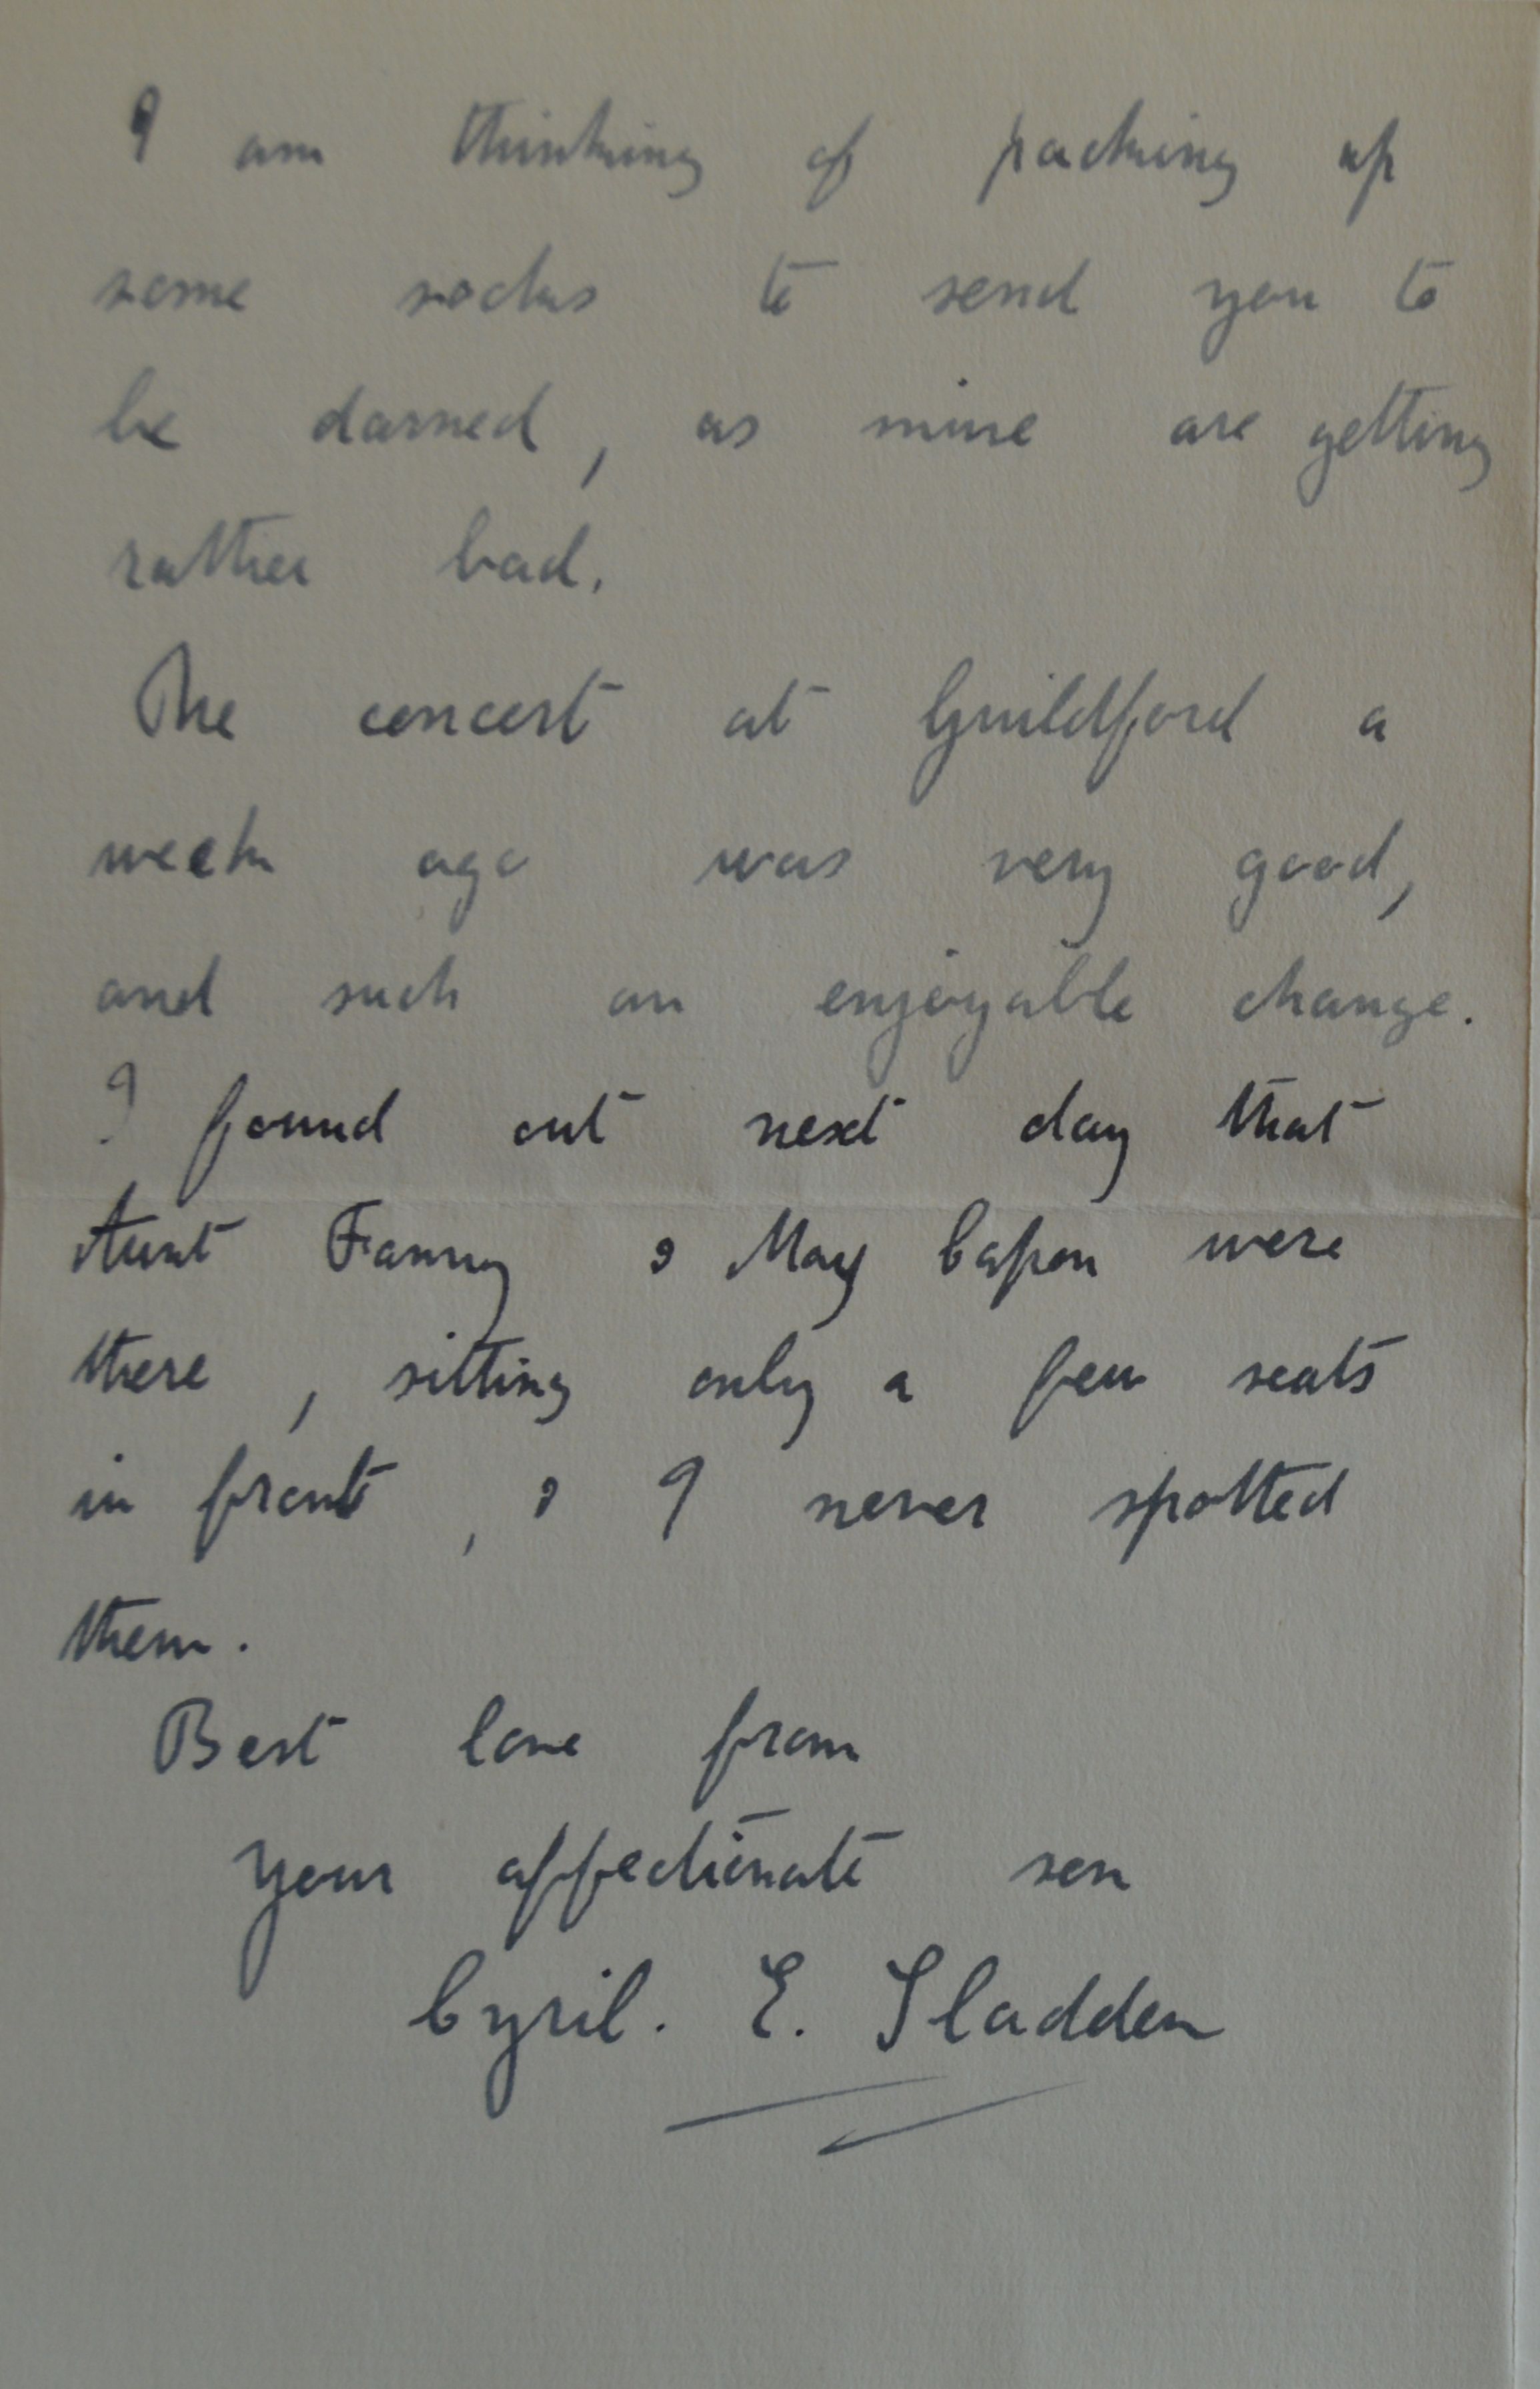 I am thinking of packing up
some socks to send you to
be darned, as mine are getting
rather bad.
The concert at Guildford a
week ago was very good,
and such an enjoyable change.
I found out next day that
Aunt Fanny & May Capon were
there, sitting only a few seats
in front, & I never spotted
them.
Best love from
your affectionate son
Cyril. E. Sladden